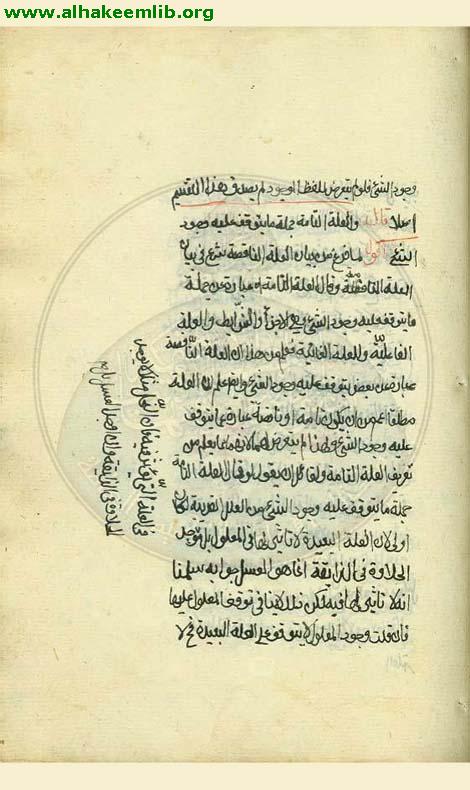 www.alhakeemlib.org
وجود الشئ فلو لم يتعرض للفظ الوجود لم يصدق هذا التقسيم
اصلا قال والعلة التامة جملة ما يتوقف عليه وجود
الشئ اقول لما فرغ من بيان العلة الناقصة شرع في بيان
العلة التامة وقال العلة التامة عبارة عن جملة
ما يتوقف عليه وجود الشئ وهي الاجزاء والشرايط والعلة
الفاعلية والعلة الغائية فعلم من هذا ان العلة الناقصة
عبارة عن بعض يتوقف عليه وجود الشئ وايضا علم ان العلة
مطلقا اعم من ان يكون تامة او ناقصة عبارة عما يتوقف
عليه وجود الشئ ولهذا لم يتعرض لهما لانهما يعلم من
تعريف العلة التامة ولقائل ان يقول لو قال العلة التامة
جملة ما يتوقف عليه وجود الشئ من العلل القريبة لكان
اولى لان العلة البعيدة لا تاثير لها في المعلول بل توجد
الحلاوة في الذايقة انما هو العسل جوابه سلمنا
انه لا تاثير لها فيه لكن ذلك لا ينافي توقف المعلول عليها
فان قلت وجود المعلول لا يتوقف على العلة البعيدة فح لا
في العلة التي
الحلاوة في الذايقة وان اوصل العسل